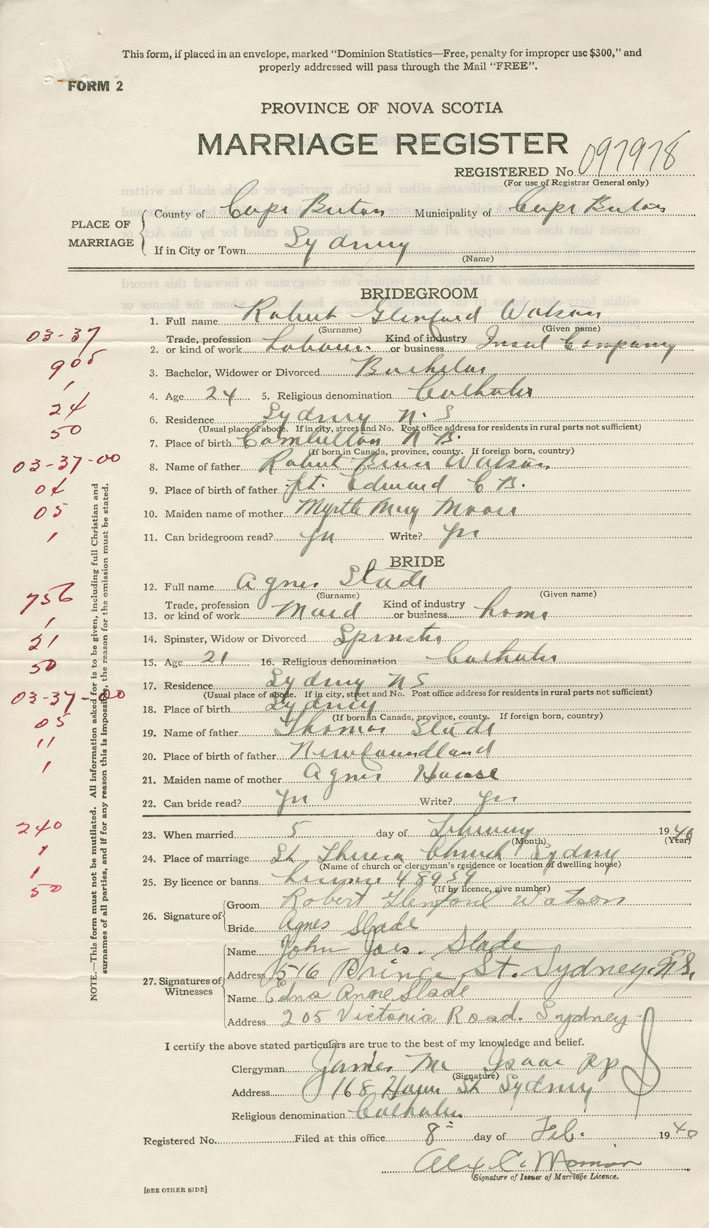 This form, if placed in an envelope, marked "Dominion Statistics—Free, penalty for improper use $300," and
properly addressed will pass through the Mail "FREE".
FORM 2
PROVINCE OF NOVA SCOTIA
MARRIAGE REGISTER
REGISTERED No. 097978
(For use of Registrar General only)
PLACE OF MARRIAGE
County of Cape Breton Municipality of Cape Breton
If in City or Town Sydney
(Name)
BRIDEGROOM
1. Full name Robert Glenford Watson
(Surname) (Given name)
03-37
Trade, profession Kind of industry
2. or kind of work Labourer or business Company
905
3. Bachelor, Widower or Divorced Bachelor
1
4. Age 24 5. Religious denomination Catholic
24
6. Residence Sydney N.S
50
(Usual place of abode. If in city, street and No. Post office address for residents in rural parts not sufficient)
7. Place of birth Cambellton N B.
(If born in Canada, province, county. If foreign born, country)
03-37-00
8. Name of father Robert Bruce Watson
04
9. Place of birth of father Pt. Edward C B.
05
10. Maiden name of mother Myrtle May Moore
1
11. Can bridegroom read? Yes Write? Yes
BRIDE
12. Full name Agnes Slade
(Surname) (Given name)
756
Trade, profession Kind of industry
13. or kind of work Maid or business home
1
14. Spinster, Widow or Divorced Spinster
21
15. Age 21 16. Religious denomination Catholic
50
17. Residence Sydney NS
(Usual place of abode. If in city, street and No. Post office address for residents in rural parts not sufficient)
03-37-00
18. Place of birth Sydney
(If born in Canada, province, county. If foreign born, country)
05
19. Name of father Thomas Slade
11
20. Place of birth of father Newfoundland
1
21. Maiden name of mother Agnes
22. Can bride read? Yes Write? Yes
240
23. When married 5 day of February 1940
(Month) (Year)
1
24. Place of marriage St. Theresa Church Sydney
(Name of church or clergyman's residence or location of dwelling house)
1
25. By licence or banns License 48959
(If by licence, give number)
50
26. Signature of
Groom Robert Glenford Watson
Bride Agnes Slade
27. Signatures of Witnesses
Name John Jos. Slade
Address 516 Prince St. Sydney. N.S.
Name Edna Anne Slade
Address 205 Victoria Road. Sydney
I certify the above stated particulars are true to the best of my knowledge and belief.
Clergyman James Mc Isaac P.P.
(Signature)
Address 168 St Sydney
Religious denomination Catholic
Registered No. Filed at this office 8 day of Feb. 1940
Alex C.
(Signature of Issuer of Marriage Licence.
[SEE OTHER SIDE]
NOTE.—This form must not be mutilated. All Information asked for is to be given, including full Christian and
surnames of all parties, and if for any reason this is impossible, the reason for the omission must be stated.